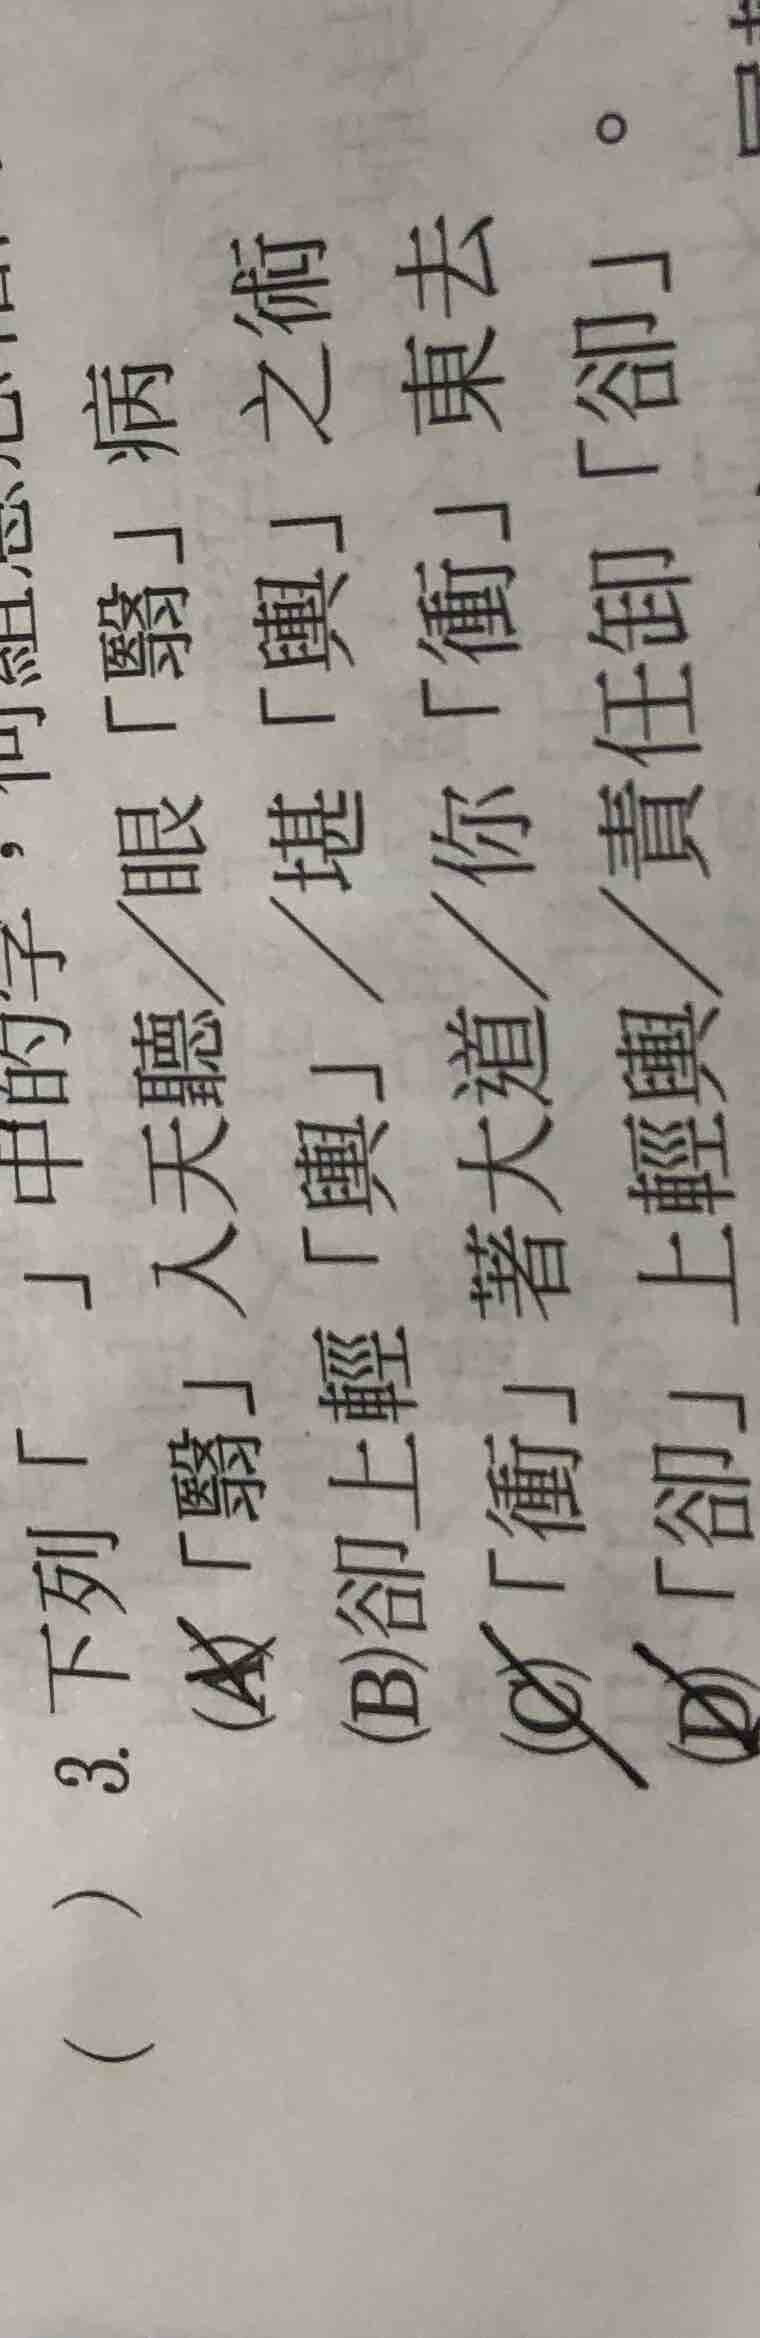 ( ) 3. 下列「　」中的字，何組意思相
(A)「翳」入天聽／眼「翳」病
(B)卻上輕「輿」／堪「輿」之術
(C)「衝」著大道／你「衝」東去
(D)「卻」上輕輿／責任卸「卻」。